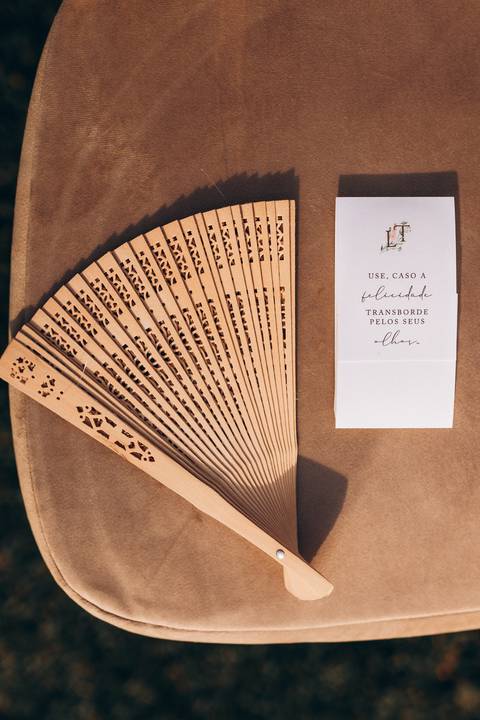 LT
USE, CASO A
felicidade
TRANSBORDE
PELOS SEUS
olhos.